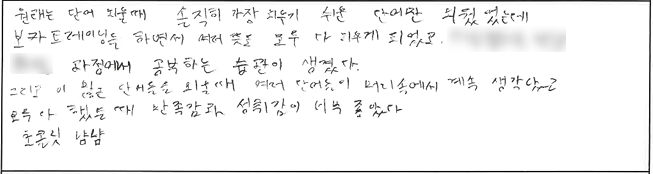 원래는 단어 외울때 솔직히 가장 외우기 쉬운 단어만 외웠었는데
보카트레이닝을 하면서 여러 뜻을 모두 다 외우게 되었고.
과정에서 공부하는 습관이 생겼다.
그리고 이 많은 단어들을 외울때 여러 단어들이 머리속에서 계속 생각났고
모두 다 했을 때 만족감과 성취감이 너무 좋았다
초콜릿 냠냠